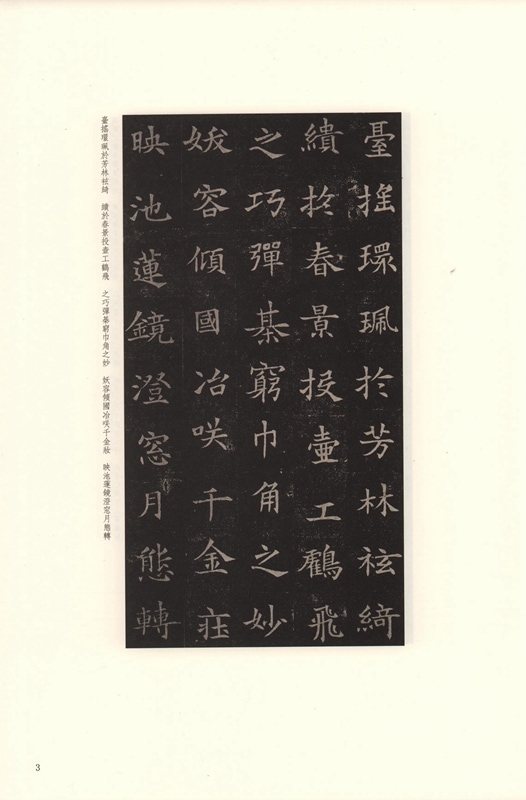 臺搖環珮扵芳林袨綺
繢扵春景投壷工鶴飛
之巧彈棊窮巾角之妙
妖容傾國冶咲千金莊
映池蓮鏡澄窓月態轉
臺搖環珮於芳林袨綺　繢於春景投壺工鶴飛　之巧彈棊窮巾角之妙　妖容傾國冶咲千金妝　映池蓮鏡澄窓月態轉
3